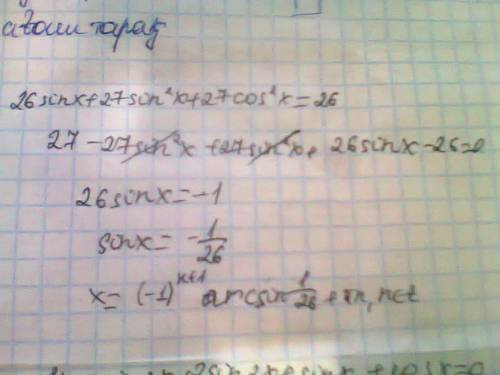 26 sinx + 27 sin²x + 27 cos²x = 26
27 - 27 sin²x + 27 sin²x + 26 sinx - 26 = 0
26 sinx = -1
sinx = -1/26
x = (-1)ⁿ⁺¹ arcsin 1/26 + πn, n∈Z